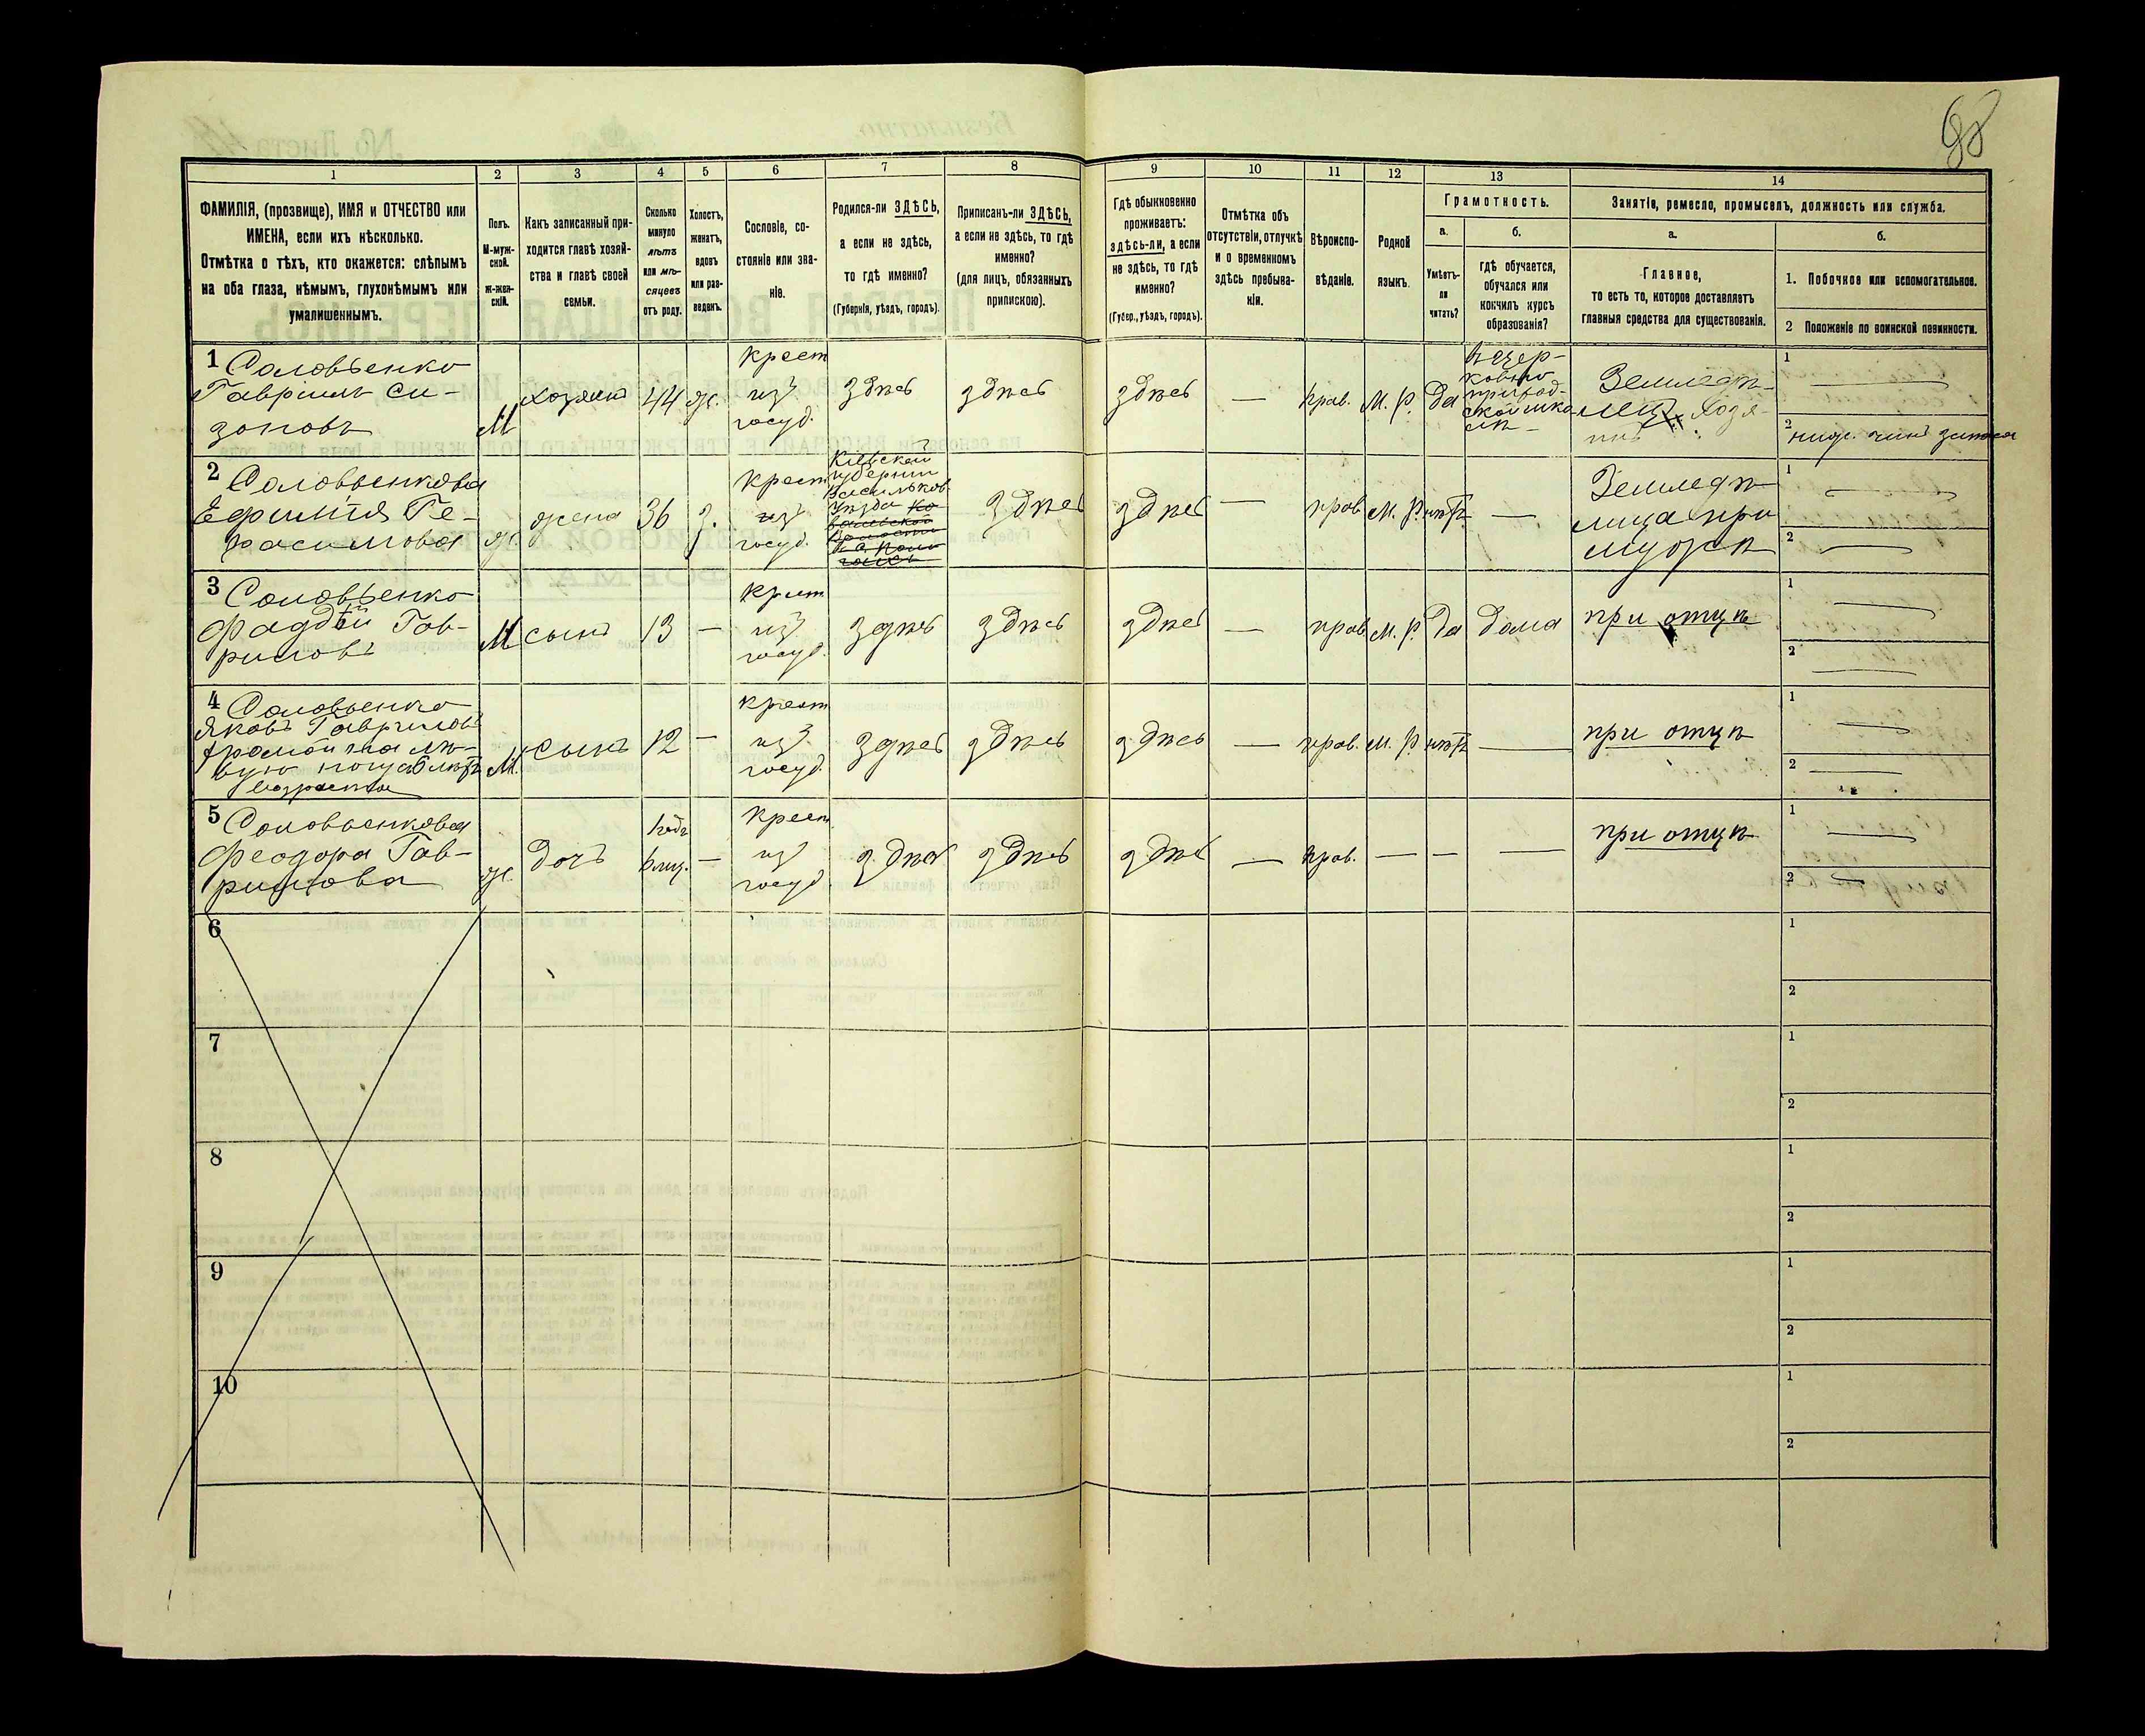 98
1
2
3
4
5
6
7
8
9
10
11
12
13
14
ФАМИЛІЯ, (прозвище), ИМЯ и ОТЧЕСТВО или
ИМЕНА, если ихъ нѣсколько.
Отмѣтка о тѣхъ, кто окажется: слѣпымъ
на оба глаза, нѣмымъ, глухонѣмымъ или
умалишеннымъ.
Полъ.
М-муж-
ской.
ж-жен-
скій.
Какъ записанный при-
ходится главѣ хозяй-
ства и главѣ своей
семьи.
Сколько
минуло
лѣтъ
или мѣ-
сяцевъ
отъ роду.
Холостъ,
женатъ,
вдовъ
или раз-
веденъ.
Сословіе, со-
стояніе или зва-
ніе.
Родился-ли ЗДѢСЬ,
а если не здѣсь,
то гдѣ именно?
(Губернія, уѣздъ, городъ).
Приписанъ-ли ЗДѢСЬ,
а если не здѣсь, то гдѣ
именно?
(для лицъ, обязанныхъ
припискою).
Гдѣ обыкновенно
проживаетъ:
здѣсь-ли, а если
не здѣсь, то гдѣ
именно?
(Губер., уѣздъ, городъ).
Отмѣтка объ
отсутствіи, отлучкѣ
и о временномъ
здѣсь пребыва-
ніи.
Вѣроиспо-
вѣданіе.
Родной
языкъ.
Грамотность.
а.
Умѣетъ-
ли
читать?
б.
гдѣ обучается,
обучался или
кончилъ курсъ
образованія?
Занятіе, ремесло, промыселъ, должность или служба.
а.
Главное,
то есть то, которое доставляетъ
главныя средства для существованія.
б.
1. Побочное или вспомогательное.
2 Положеніе по воинской повинности.
1 Соловьенко
Гавріилъ Си-
зоновъ
М
хозяинъ
44
ж.
крест
из
госуд.
здѣсь
здѣсь
здѣсь
—
прав.
М. Р.
да
в цер-
ковно
приход-
ской шко-
лѣ
Земледѣ-
лец Хозя-
инъ
1 —
2 ниж. чинъ запаса
2 Соловьенкова
Ефимія Ге-
расимова
ж.
жена
36
з.
крест
из
госуд.
Кіевской
губерніи
Васильков.
уѣзда
здѣсь
здѣсь
—
прав
М. Р.
нѣтъ
—
Земледѣ-
лица при
мужѣ
1 —
2 —
3 Соловьенко
Фаддей Гав-
риловъ
М
сынъ
13
—
крест
из
госуд.
здѣсь
здѣсь
здѣсь
—
прав
М. Р.
да
дома
при отцѣ
1 —
2 —
4 Соловьенко
Яковъ Гавриловъ
хромой на лѣ-
вую ногу
возраста
М.
сынъ
12
—
крест
из
госуд.
здѣсь
здѣсь
здѣсь
—
прав.
М. Р.
нѣтъ
—
при отцѣ
1 —
2 —
5 Соловьенкова
Феодора Гав-
рилова
ж.
дочь
1 годъ
6 мц.
—
крест.
из
госуд
здѣсь
здѣсь
здѣсь
—
прав.
—
—
—
при отцѣ
1 —
2 —
6
1
2
7
1
2
8
1
2
9
1
2
10
1
2